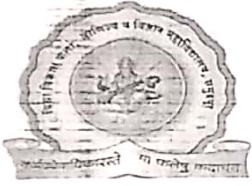 विद्या विकास कला, वाणिज्य व विज्ञान महाविद्यालय,
कर्मण्येवाधिकारस्ते मा फलेषु कदाचन